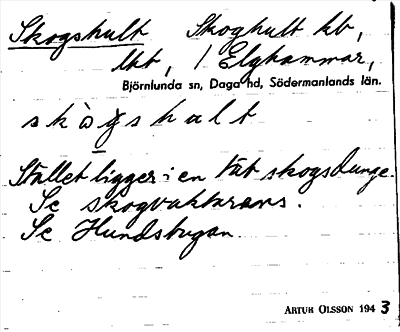 Skogshult Skoghult kb,
lht, 1 Elghammar,
Björnlunda sn, Daga hd, Södermanlands län.
skògshult
Stället ligger i en tät skogsdunge.
Se skogvaktarens.
Se Hundstugan.
ARTUR OLSSON 1943